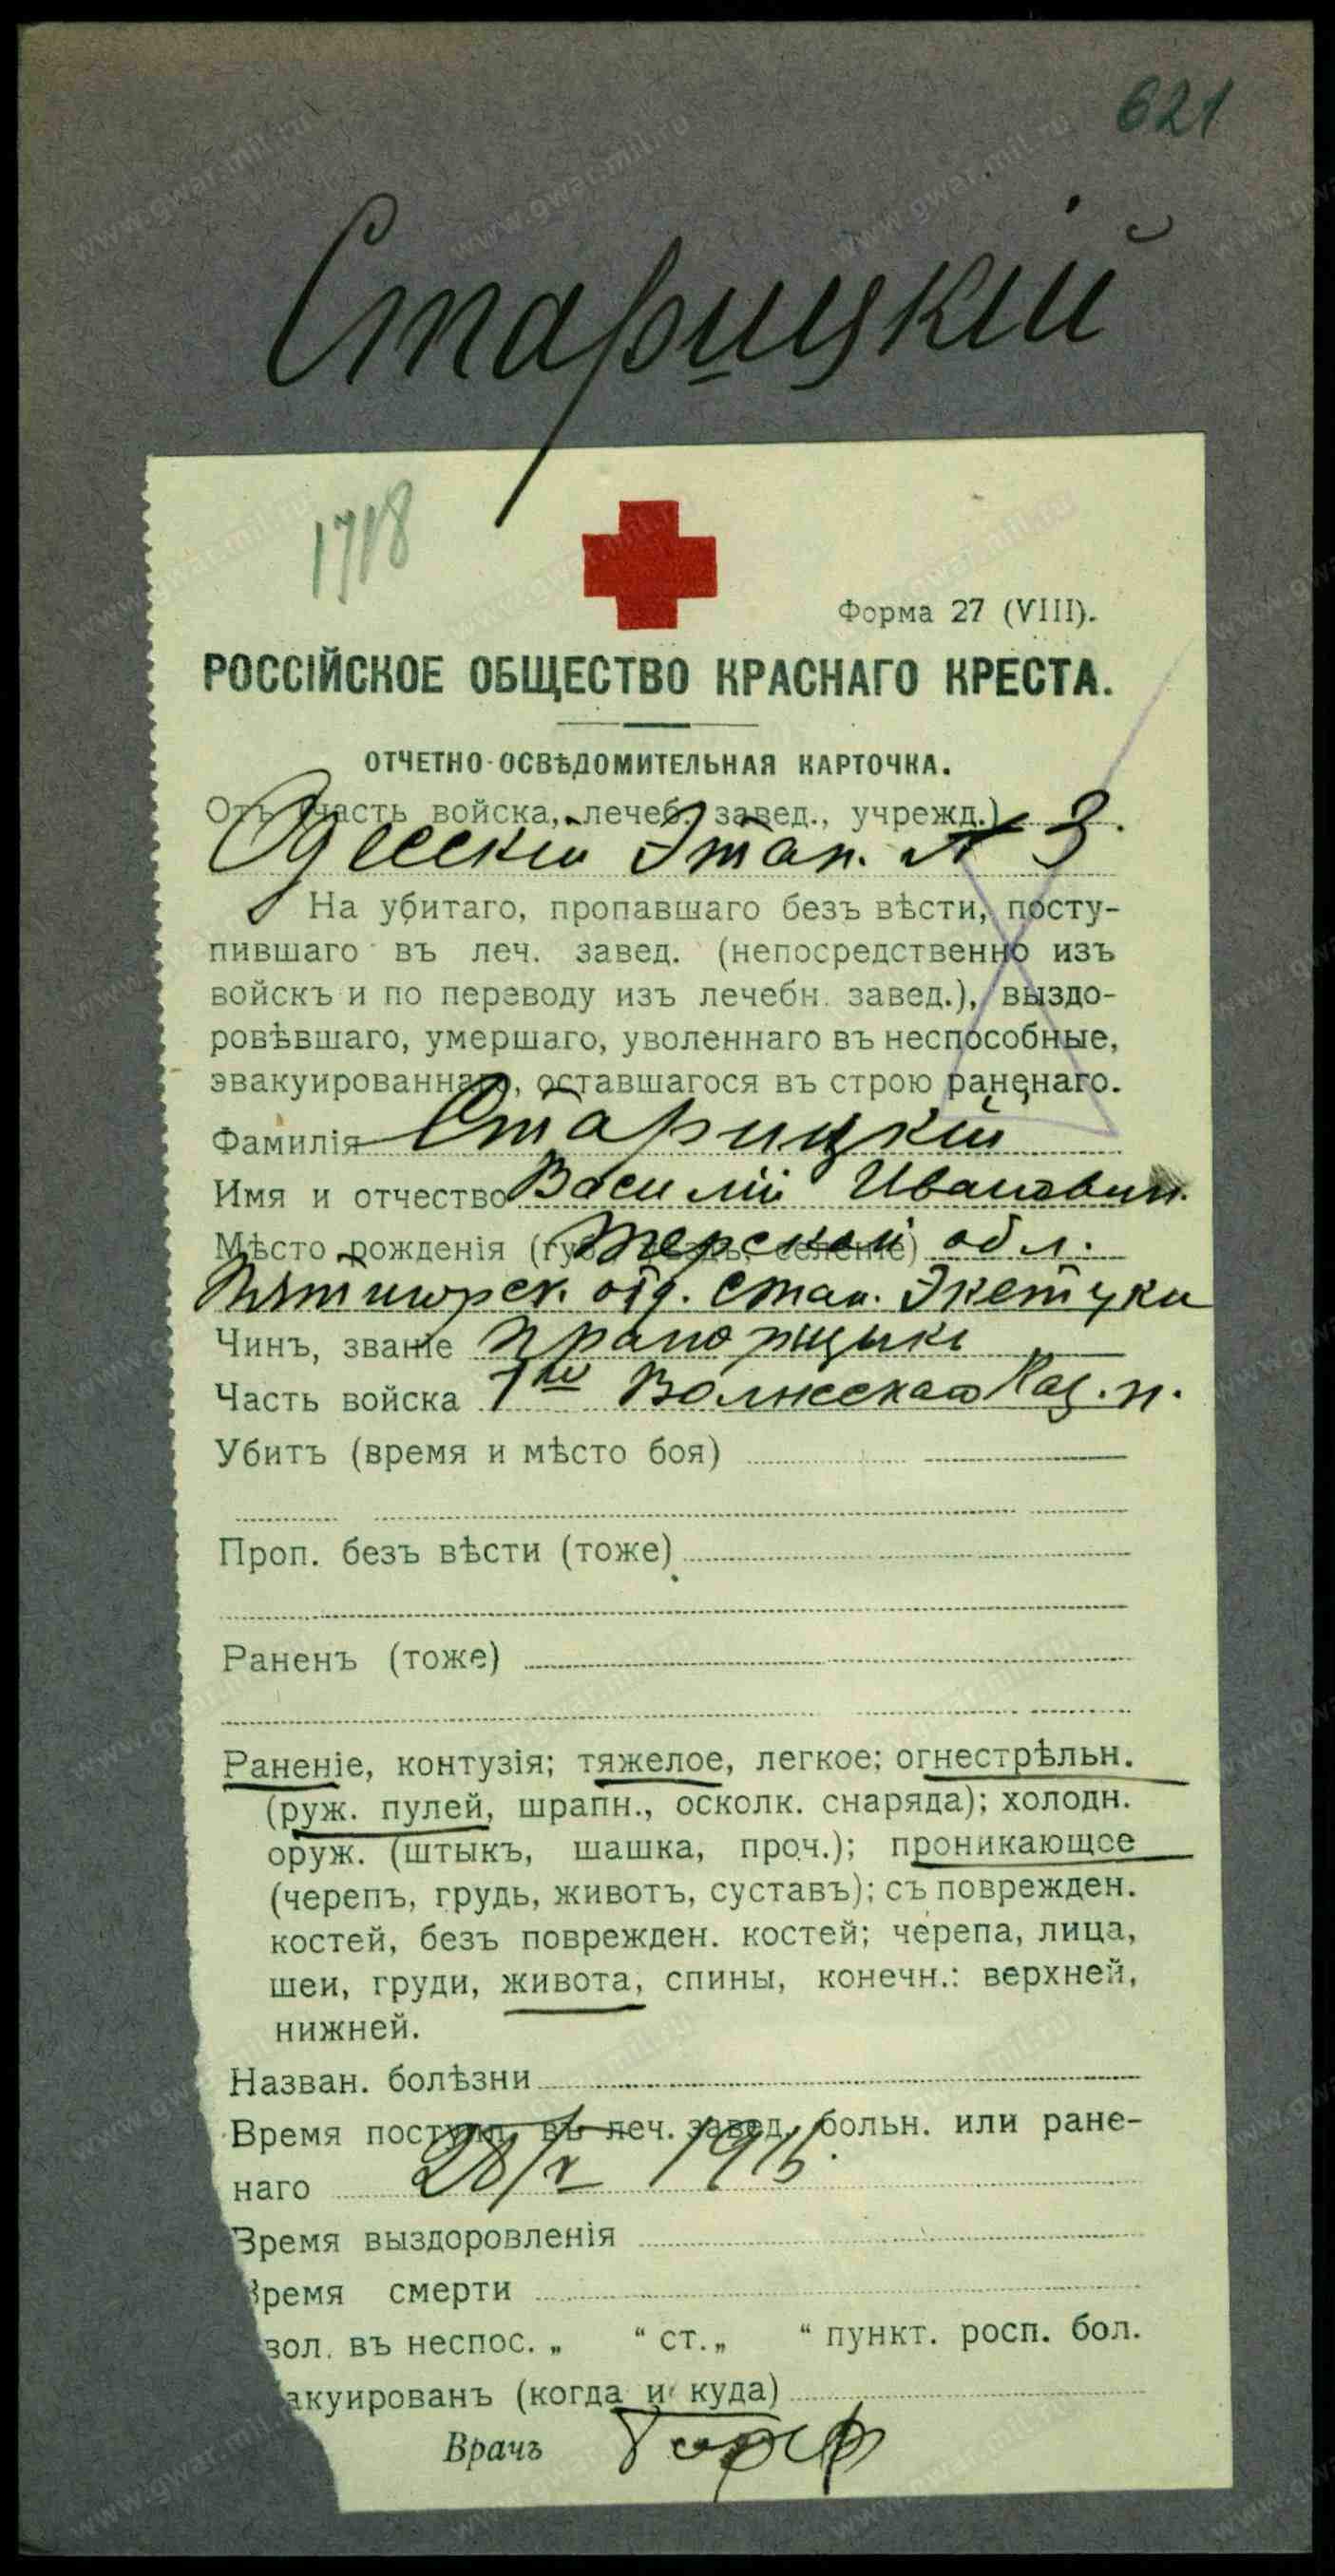 621
Старицкій
1718
Форма 27 (VIII).
РОССІЙСКОЕ ОБЩЕСТВО КРАСНАГО КРЕСТА.
ОТЧЕТНО-ОСВѢДОМИТЕЛЬНАЯ КАРТОЧКА.
Отъ (часть войска, лечеб. завед., учрежд.)
Одесскій Этап. № 3.
На убитаго, пропавшаго безъ вѣсти, посту-
пившаго въ леч. завед. (непосредственно изъ
войскъ и по переводу изъ лечебн. завед.), выздо-
ровѣвшаго, умершаго, уволеннаго въ неспособные,
эвакуированнаго, оставшагося въ строю раненаго.
Фамилія Старицкій
Имя и отчество Василій Иванович.
Мѣсто рожденія (губ., уѣздъ, селеніе) Терской обл.
Пятигорск. отд. стан. Эсетуки
Чинъ, званіе прапорщикъ
Часть войска 1го Волжскаго Каз. п.
Убитъ (время и мѣсто боя)
Проп. безъ вѣсти (тоже)
Раненъ (тоже)
Раненіе, контузія; тяжелое, легкое; огнестрѣльн.
(руж. пулей, шрапн., осколк. снаряда); холодн.
оруж. (штыкъ, шашка, проч.); проникающее
(черепъ, грудь, животъ, суставъ); съ поврежден.
костей, безъ поврежден. костей; черепа, лица,
шеи, груди, живота, спины, конечн.: верхней,
нижней.
Назван. болѣзни
Время поступл. въ леч. завед. больн. или ране-
наго 28/V 1915.
Время выздоровленія
Время смерти
вол. въ неспос. „ “ ст. „ “ пункт. росп. бол.
акуированъ (когда и куда)
Врачъ
www.gwar.mil.ru